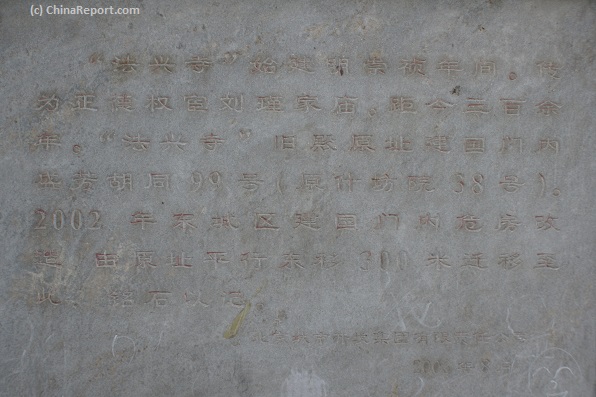 (c) ChinaReport.com
“法兴寺”始建明崇祯年间。传
为正德权宦刘瑾家庙。距今三百余
年。“法兴寺” 旧殿原址建国门内
芳胡同 99 号(原什坊院 38 号)。
2002 年东城区建国门内危房改
造 由原址平行东移 300 米迁移至
此、铭石以记
北京